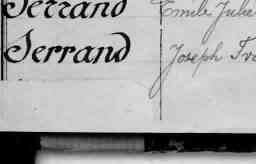 Serrand Emile Julie
Serrand Joseph